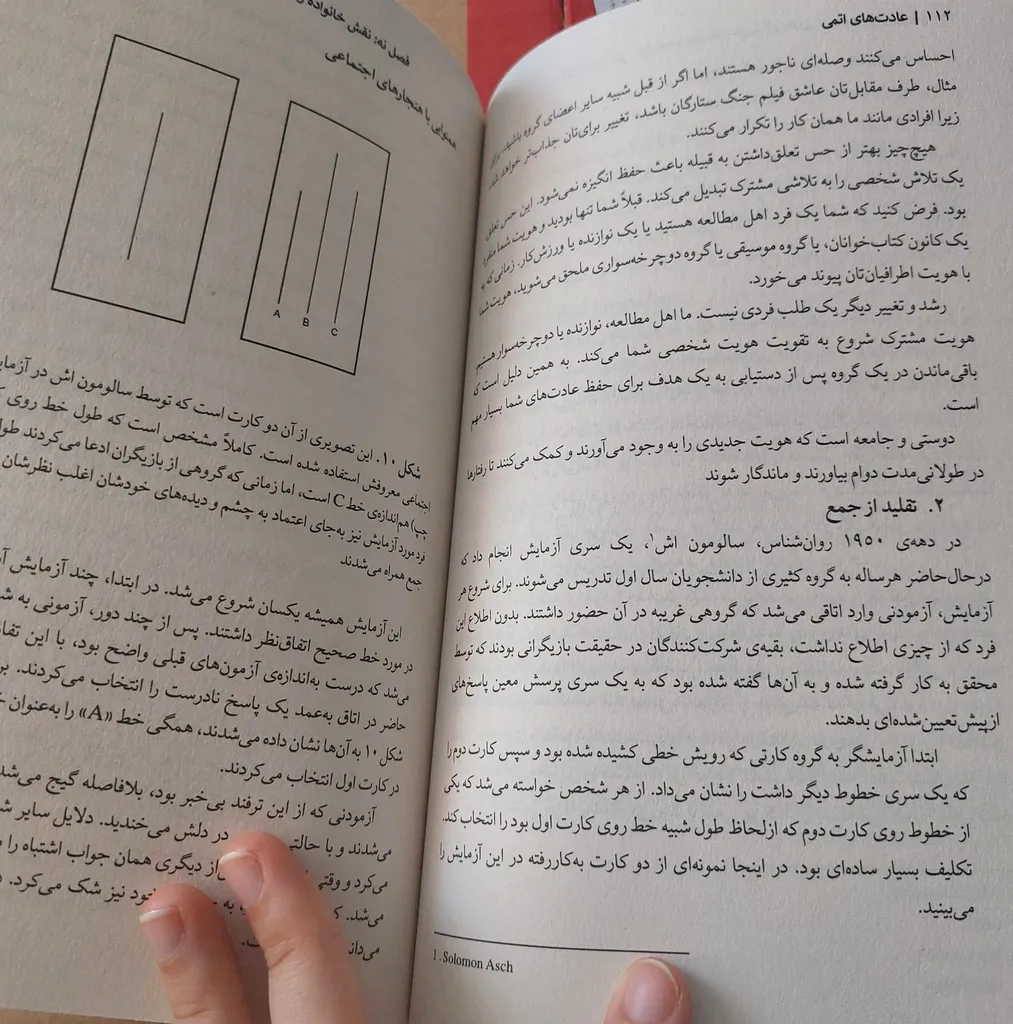 ۱۱۲ | عادت‌های اتمی
احساس می‌کنند وصله‌ای ناجور هستند، اما اگر از قبل شبیه سایر اعضای گروه باشید، برای
مثال، طرف مقابل‌تان عاشق فیلم جنگ ستارگان باشد، تغییر برای‌تان جذاب‌تر خواهد شد،
زیرا افرادی مانند ما همان کار را تکرار می‌کنند.
هیچ‌چیز بهتر از حس تعلق‌داشتن به قبیله باعث حفظ انگیزه نمی‌شود. این حس تعلق،
یک تلاش شخصی را به تلاشی مشترک تبدیل می‌کند. قبلاً شما تنها بودید و هویت شما منفرد
بود. فرض کنید که شما یک فرد اهل مطالعه هستید یا یک نوازنده یا ورزش‌کار. زمانی که به
یک کانون کتاب‌خوانان، یا گروه موسیقی یا گروه دوچرخه‌سواری ملحق می‌شوید، هویت شما
با هویت اطرافیان‌تان پیوند می‌خورد.
رشد و تغییر دیگر یک طلب فردی نیست. ما اهل مطالعه، نوازنده یا دوچرخه‌سوار هستیم.
هویت مشترک شروع به تقویت هویت شخصی شما می‌کند. به همین دلیل است که
باقی‌ماندن در یک گروه پس از دستیابی به یک هدف برای حفظ عادت‌های شما بسیار مهم
است.
دوستی و جامعه است که هویت جدیدی را به وجود می‌آورند و کمک می‌کنند تا رفتارها
در طولانی‌مدت دوام بیاورند و ماندگار شوند
۲. تقلید از جمع
در دهه‌ی ۱۹۵۰ روان‌شناس، سالومون اش۱، یک سری آزمایش انجام داد که
درحال‌حاضر هرساله به گروه کثیری از دانشجویان سال اول تدریس می‌شوند. برای شروع هر
آزمایش، آزمودنی وارد اتاقی می‌شد که گروهی غریبه در آن حضور داشتند. بدون اطلاع این
فرد که از چیزی اطلاع نداشت، بقیه‌ی شرکت‌کنندگان در حقیقت بازیگرانی بودند که توسط
محقق به کار گرفته شده و به آن‌ها گفته شده بود که به یک سری پرسش معین پاسخ‌های
ازپیش‌تعیین‌شده‌ای بدهند.
ابتدا آزمایشگر به گروه کارتی که رویش خطی کشیده شده بود و سپس کارت دوم را
که یک سری خطوط دیگر داشت را نشان می‌داد. از هر شخص خواسته می‌شد که یکی
از خطوط روی کارت دوم که ازلحاظ طول شبیه خط روی کارت اول بود را انتخاب کند.
تکلیف بسیار ساده‌ای بود. در اینجا نمونه‌ای از دو کارت به‌کاررفته در این آزمایش را
می‌بینید.
1. Solomon Asch
فصل نه: نقش خانواده و
همنوایی با هنجارهای اجتماعی
A B C
شکل ۱۰. این تصویری از آن دو کارت است که توسط سالومون اش در
اجتماعی معروفش استفاده شده است. کاملاً مشخص است که طول خط روی
چپ) هم‌اندازه‌ی خط C است، اما زمانی که گروهی از بازیگران ادعا می‌کردند
فرد مورد آزمایش نیز به‌جای اعتماد به چشم و دیده‌های خودشان اغلب نظرشان
جمع همراه می‌شدند
این آزمایش همیشه یکسان شروع می‌شد. در ابتدا، چند آزمایش
در مورد خط صحیح اتفاق‌نظر داشتند. پس از چند دور، آزمونی به
می‌شد که درست به‌اندازه‌ی آزمون‌های قبلی واضح بود، با این
حاضر در اتاق به‌عمد یک پاسخ نادرست را انتخاب می‌کردند.
شکل ۱۰ به آن‌ها نشان داده می‌شدند، همگی خط «A» را به‌عنوان
در کارت اول انتخاب می‌کردند.
آزمودنی که از این ترفند بی‌خبر بود، بلافاصله گیج
می‌شدند و با حالتی در دلش می‌خندید. دلایل سایر
می‌کرد و وقتی از دیگری همان جواب اشتباه را
می‌شد. به خود نیز شک می‌کرد.